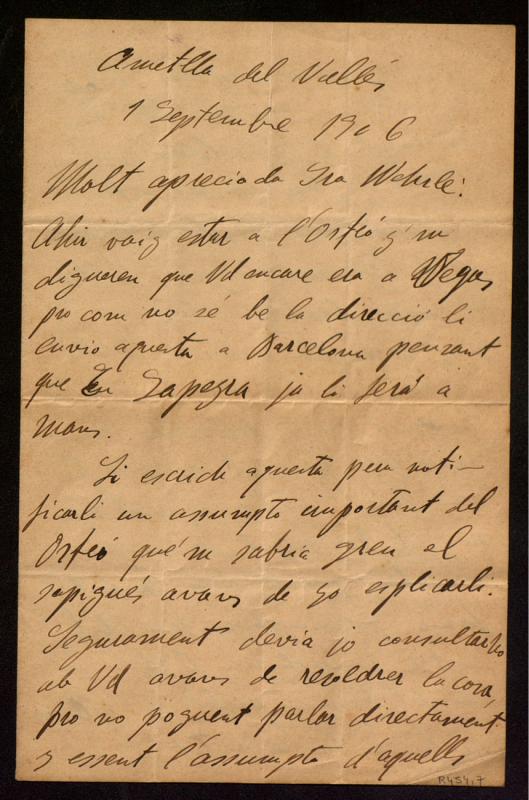 Ametlla del Vallés
1 Septembre 1906
Molt apreciada Sra Wehrle:
Ahir vaig estar a l'Orfeó y'm
digueren que Vd encare era a Begas
pro com no sé be la direcció li
envio aquesta a Barcelona pensant
que En Sapera ja li ferá a
mans.
Li escrich aquesta pera noti-
ficarli un assumpto important del
Orfeó que'm sabria greu el
sapigués avans de jo esplicarli.
Segurament devia jo consultarho
ab Vd avans de resoldrer la cosa,
pro no poguent parlar directament
y essent l'assumpto d'aquells
R454,7